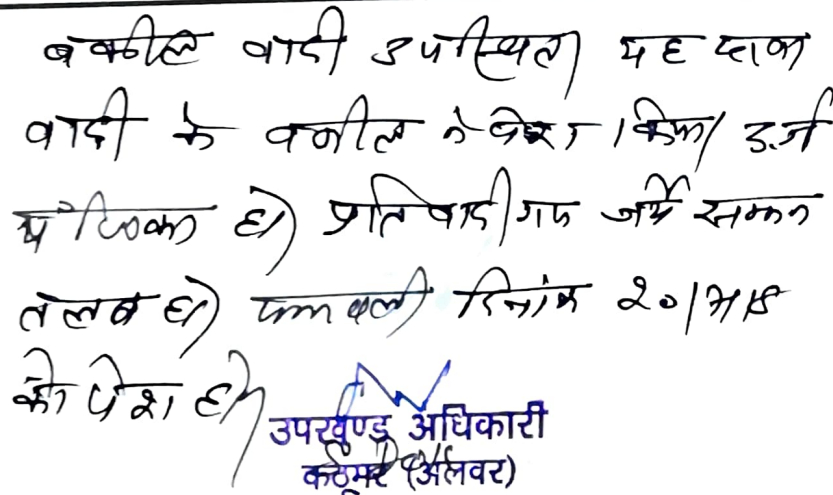 वकील वादी उपस्थित। यह दावा
वादी के वकील ने पेश किया। दर्ज
पंजिका हो। प्रतिवादीगण जर्ये सम्मन
तलब हो। पत्रावली दिनांक 20/7/18
को पेश हो।
उपखण्ड अधिकारी
कठूमर (अलवर)